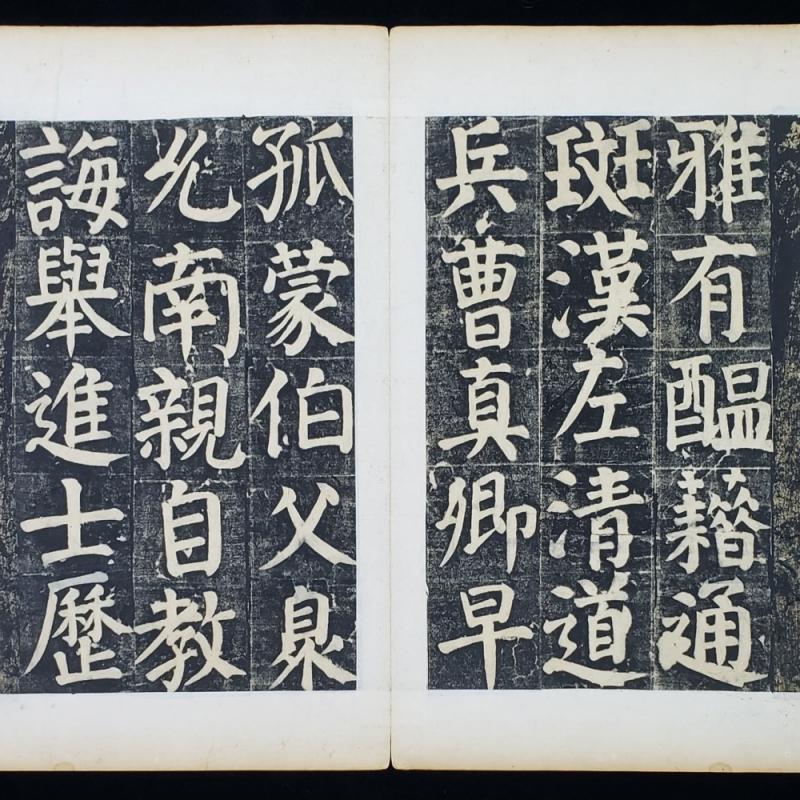 雅有醖藉通
斑漢左清道
兵曹真卿早
孤蒙伯父臮
允南親自教
誨舉進士歴